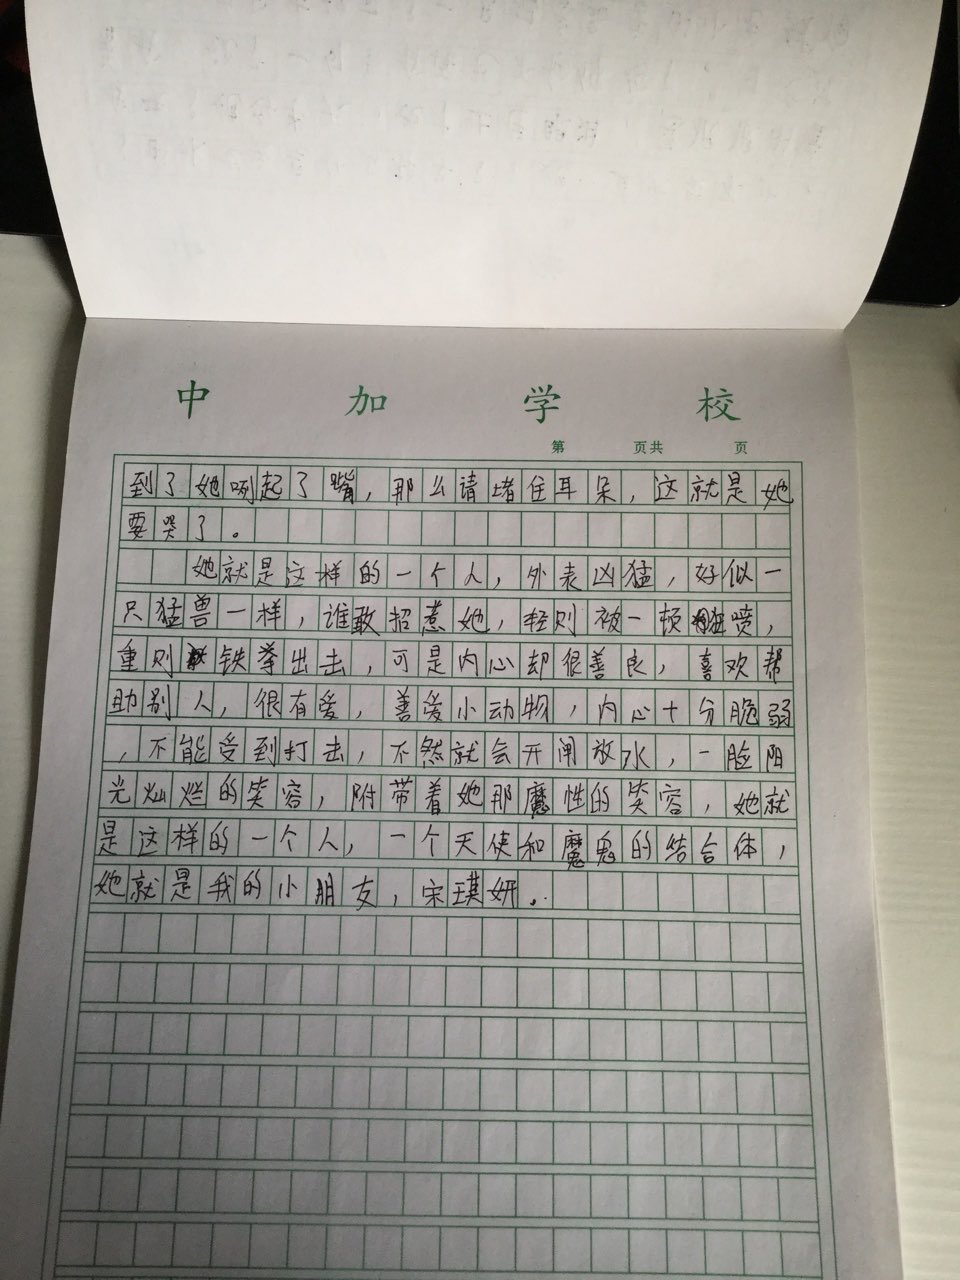 中加学校
第 页共 页
到了她咧起了嘴，那么请堵住耳朵，这就是她
要哭了。
她就是这样的一个人，外表凶猛，好似一
只猛兽一样，谁敢招惹她，轻则被一顿狂喷，
重则铁拳出击，可是内心却很善良，喜欢帮
助别人，很有爱，善爱小动物，内心十分脆弱
，不能受到打击，不然就会开闸放水，一脸阳
光灿烂的笑容，附带着她那魔性的笑容，她就
是这样的一个人，一个天使和魔鬼的结合体，
她就是我的小朋友，宋琪妍。